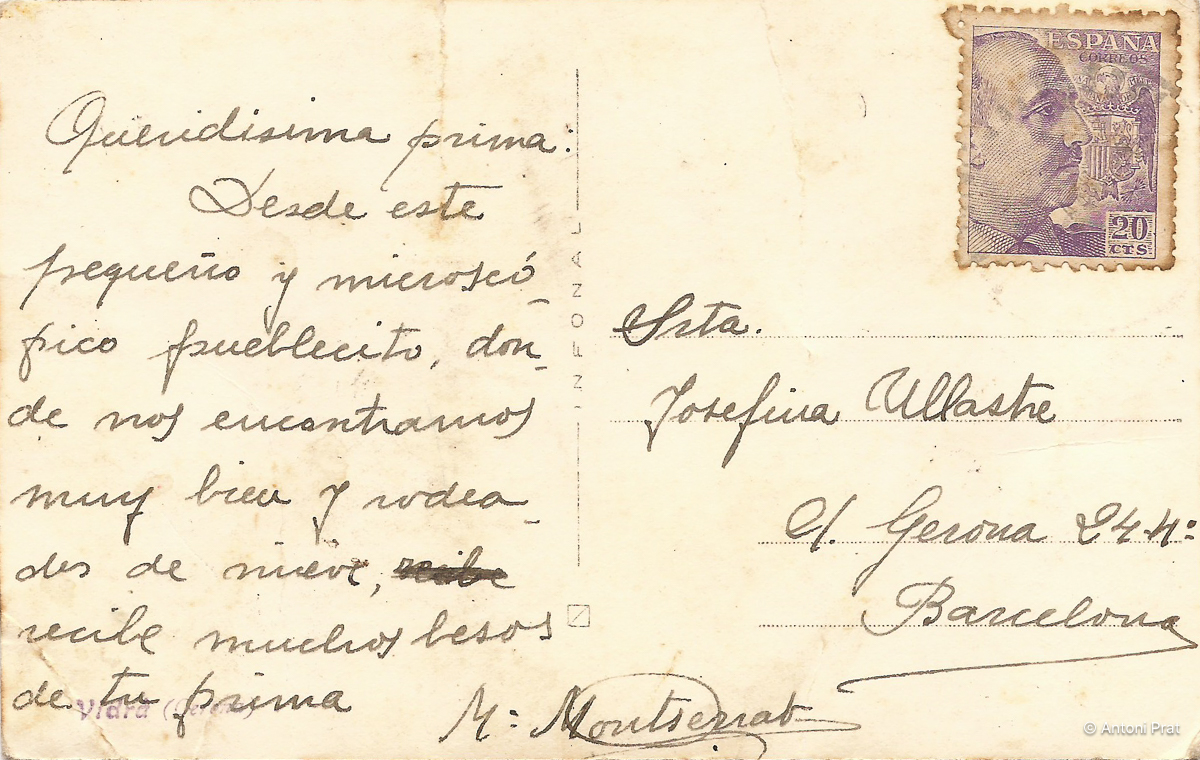 Queridisima prima:
Desde este
pequeño y microscó-
pico pueblecito, don-
de nos encontramos
muy bien y rodea-
dos de nieve, recibe
recibe muchos besos
de tu prima
Mª Montserrat
Vidrá
INFONAL
ESPAÑA
CORREOS
20
CTS
Srta.
Josefina Ullastre
C/. Gerona 244:
Barcelona
© Antoni Prat